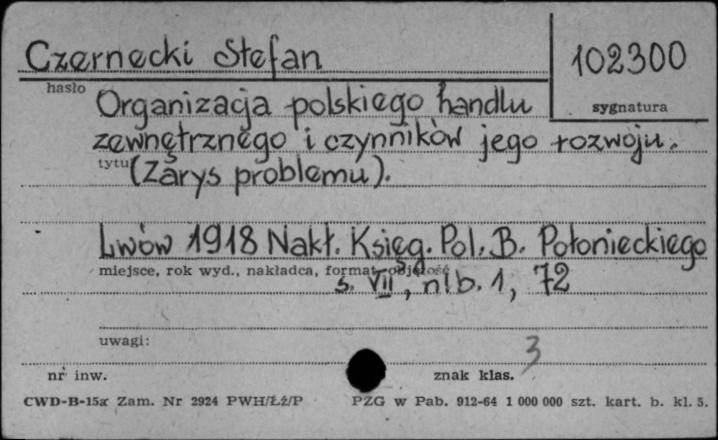 Czernecki Stefan
102300
hasło
sygnatura
Organizacja polskiego handlu
zewnętrznego i czynników jego rozwoju.
tytuł
(Zarys problemu).
Lwów 1918 Nakł. Księg. Pol. B. Połonieckiego
miejsce, rok wyd., nakładca, format, objętość
s. VII, nlb. 1, 72
uwagi:
3
nr inw.
znak klas.
CWD-B-15x Zam. Nr 2924 PWH/Łż/P PZG w Pab. 912-64 1 000 000 szt. kart. b. kl. 5.